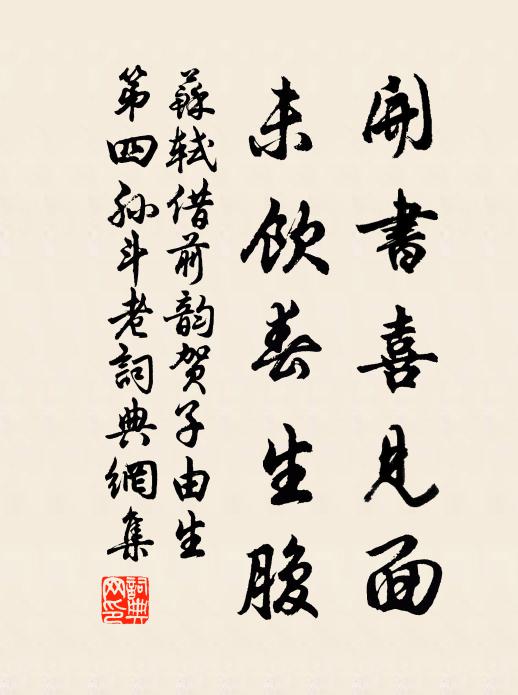 開書喜見面
未飲春生腹
蘇軾借前韵贺子由生
第四孙斗老詞典網集
詞典
网印